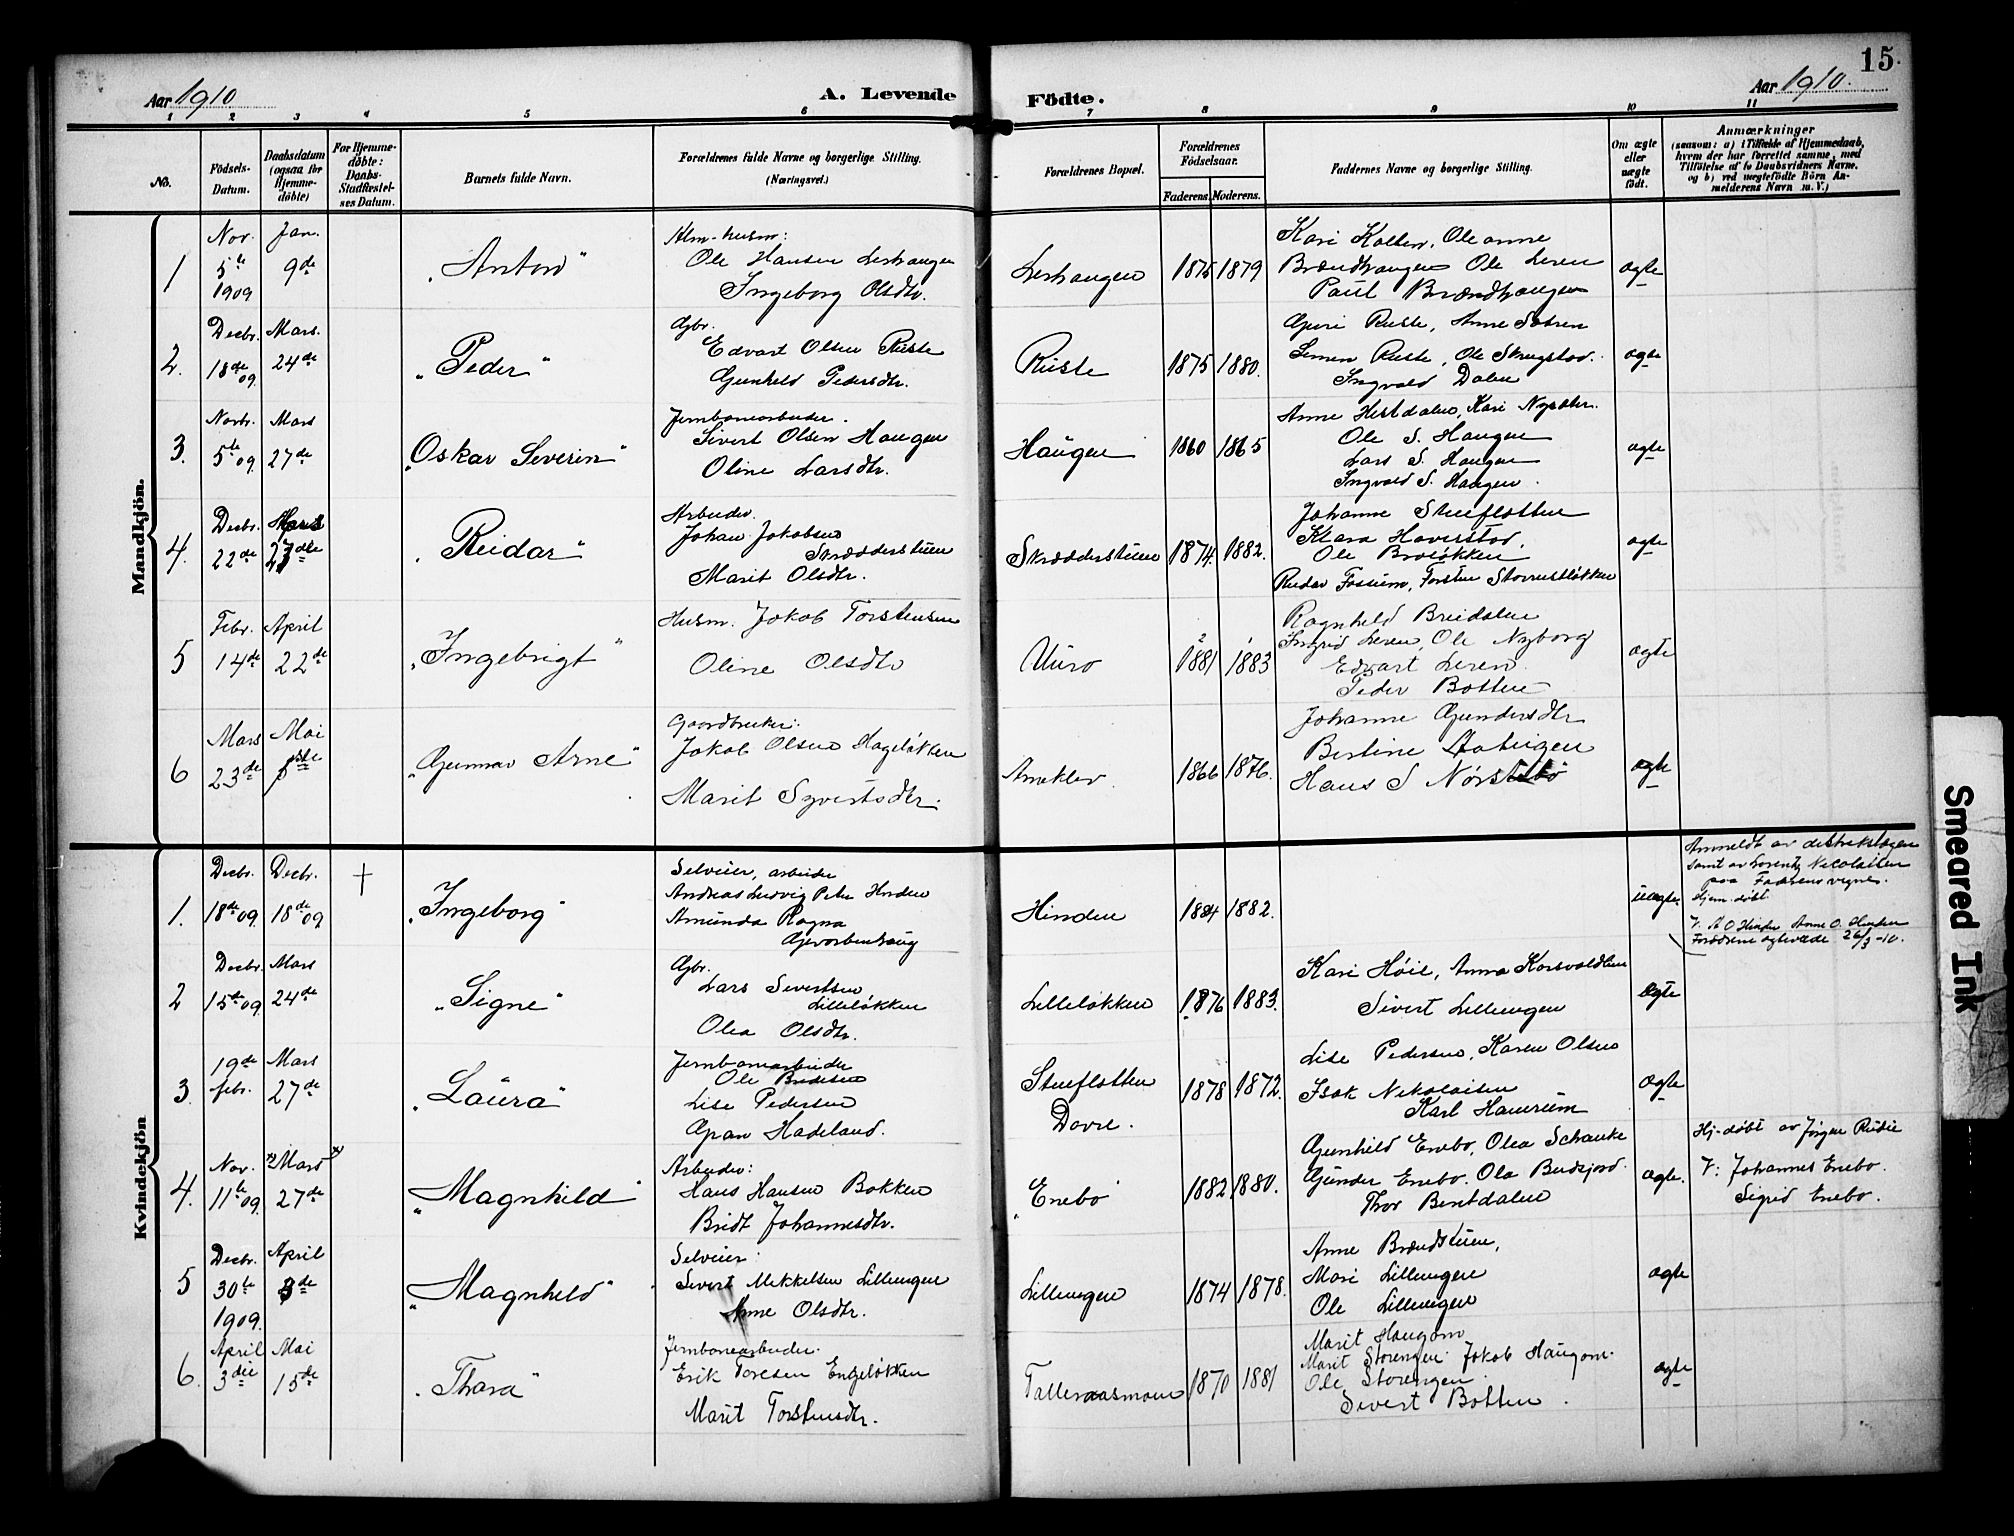 15.
Aar 1910
A. Levende Födte.
Aar 1910.
1 2 3 4 5 6 7 8 9 10 11
No.
Födsels-Datum.
Daabsdatum (ogsaa for Hjemme-döbte)
For Hjemme-döbte: Daabs-Stadfæstel-ses Datum.
Barnets fulde Navn.
Forældrenes fulde Navne og borgerlige Stilling.
(Næringsvei.)
Forældrenes Bopæl.
Forældrenes Födselsaar.
Faderens. Moderens.
Faddernes Navne og borgerlige Stilling.
Om ægte eller uægte födt.
Anmærkninger
(saasom: a) i Tilfælde af Hjemmedaab,
hvem der har forrettet samme, med
Tilföielse af to Daabsvidners Navne,
og b) ved uægtefödte Börn An-
melderens Navn m. V.)
Mandkjön.
1
Nov. 5te 1909
Jan. 9de
"Anton"
Ole Hansen Leshaugen
Ingeborg Olsdtr.
Leshaugen
1875 1879
Kari Kolten, Oleanne
Brændhaugen Ole Leren
Paul Brændhaugen
ægte
2.
Decbr. 18de 09.
Mars. 24de
"Peder"
Gbr.
Edvart Olsen Ruste
Gunhild Pedersdtr.
Ruste
1875 1880.
Guri Ruste, Anne
Simen Ruste, Ole Skrugstad.
Ingvald Dalen
ægte
3.
Novbr. 5te 09.
Mars 27de
"Oskar Severin"
Jernbanearbeider.
Sivert Olsen Haugen
Oline Larsdtr.
Haugen
1860 1865
Anne Hestdalen, Kari Nysæter.
Ole S. Haugen
Lars S. Haugen
Ingvald S. Haugen.
ægte
4.
Decbr. 22de
Mars 27de
"Reidar"
Arbeider.
Johan Jakobsen
Skrædderstuen
Marit Olsdtr.
Skrædderstuen
1874. 1882.
Johanne Stueflotten
Klara Haverstad.
Ole Broløkken
Reidar Fossum, Torsten Storrustløkken
ægte
5
Febr. 14de
April 22de
"Ingebrigt"
Husm. Jakob Torstensen
Oline Olsdtr
Uuro
1881 1883
Ragnhild Breidalen
Ingrid Leren, Ole Nyborg
Edvart Leren.
Peder Botten
ægte
6
Mars 23de
Mai
"Gunnar Arne"
Gaardbruker:
Jakob Olsen Hageløkken
Marit Syvertsdtr.
1866 1876.
Johanne Gundersdtr
Bertine
Hans S Nørstebø
ægte
Kvindekjön
1.
Decbr. 18de 09.
Decbr. 18de 09
†
"Ingeborg"
Selveier, arbeider
Andreas Ludvig Peter Hinden
Amunda Ragna
Hinden
1884 1882.
uægte.
Anmeldt av distriktslægen
samt av Lorentz Nicolaisen
paa Faderens vegne.
Hjem. døbt
V. A O Hinden Anne O. Hinden
Forældrene ægteviede 26/3-10.
2
Decbr. 15de 09.
Mars 24de
"Signe"
Gbr.
Lars Sivertsen
Lilleløkken
Olea Olsdtr.
Lilleløkken
1876 1883.
Kari Høie, Anna Korsvoldlien
Sivert Lillengen
ægte
3
19de febr.
Mars 27de
"Laura"
Jernbanearbeider
Ole
Lise Pedersen
Gran Hadeland.
Stueflotten
Dovre.
1878 1872.
Lise Pedersen, Karen Olsen
Isak Nikolaisen
Karl
ægte
4.
Nov. 11te 09.
Mars 27de
"Magnhild"
Arbeider:
Hans Hansen Bakken
Bridt Johannesdtr.
"Enebo
1882 1880.
Gunhild Enebo, Olea Schanke
Gunder Enebo. Ola
Thor Bentdalen
ægte.
Hj-døbt av Jørgen
V: Johannes Enebo.
Sigrid Enebo.
5
Decbr. 30te 1909.
April 3de
"Magnhild"
Selveier.
Sivert Mikkelsen Lillengen
Anne Olsdtr.
Lillengen
1874 1878.
Anne Brændstuen,
Mari Lillengen
Ole Lillengen
ægte
6.
April 3die
Mai 15de
"Thora"
Jernbanearbeider.
Erik Toresen Engeløkken
Marit Torstensdtr.
Talleraasmoen
1870 1881
Marit Haugom
Marit Storengen Jakob Haugom.
Ole Storengen.
Sivert Botten.
ægte
Smeared Ink